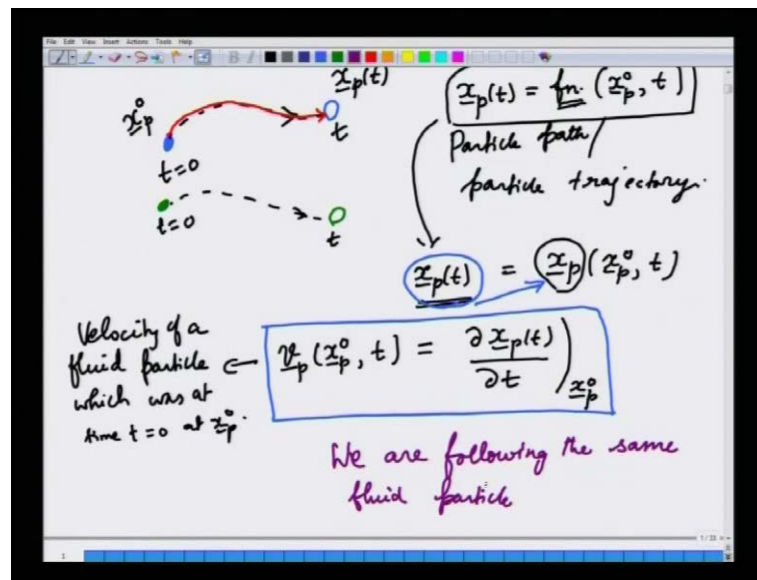 File Edit View Insert Actions Tools Help
x_p(t)
x_p(t) = fn. (x_p°, t)
x_p°
t
t=0
Particle path /
particle trajectory.
t=0
t
x_p(t) = x_p (x_p°, t)
Velocity of a
fluid particle
which was at
time t=0 at x_p°.
v_p (x_p°, t) = ∂ x_p(t) / ∂t )x_p°
We are following the same
fluid particle
1 / 33
1